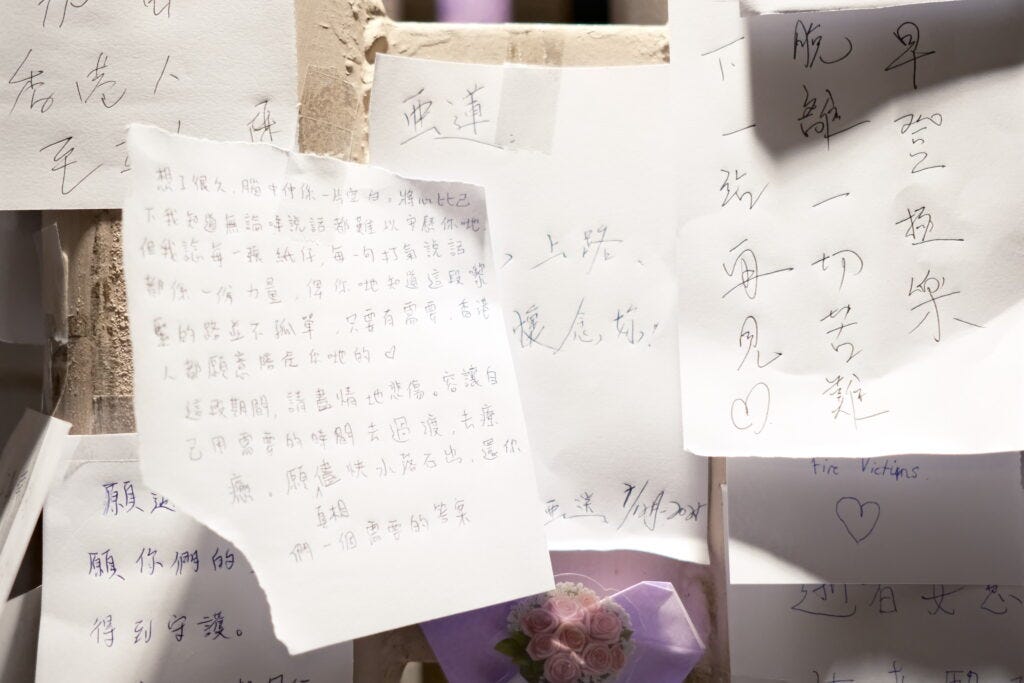 香港人
至
亞蓮：
上路、
懷念妳！
亞蓮
想了很久，腦中仲係一片空白。將心比己
下我知道無論咩說話都難以安慰你哋，
但我諗每一張紙仔，每一句打氣說話
都係一份力量，俾你哋知道這段艱
緊的路並不孤單，只要有需要，香港
人都願意陪在你哋的♡
這段期間，請盡情地悲傷。容讓自
己用需要的時間去過渡，去療
癒。願真相儘快水落石出，還你
們一個需要的答案
願
願你們的
得到守護。
早登極樂
脫離一切苦難
下一站再見♡
Fire Victims